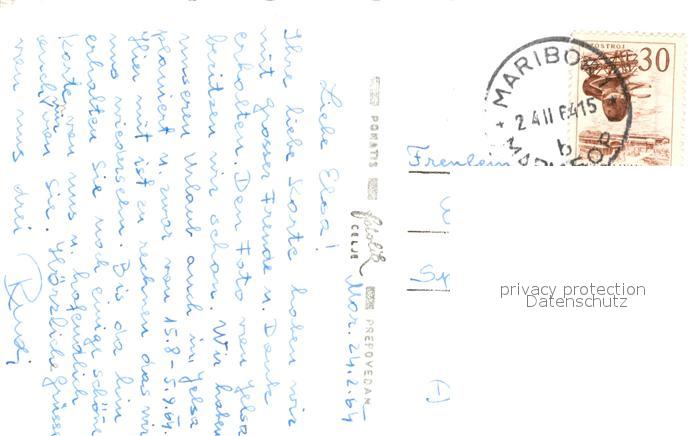 Mar. 24.2.64
Liebe Elsa!
Ihre liebe Karte haben wir
mit grosser Freude u. Dank
erhalten. Den Foto von Yelsa
besitzen wir schon. Wir haben
unseren Urlaub auch in Yelsa
planiert u. zwar von 15.8-5.9.64.
Hier mit ist zu rechnen das wir
uns wiedersehn. Bis da hin
erhalten Sie noch einige schöne
Karten von uns u. hofendlich
auch wir von Sie. Herzliche Grüsse
von uns drei Rudi
PONATIS fotolik CELJE PREPOVEDAN
30
MARIBOR
24 II 64 15
b
MARIBOR
Freulein
privacy protection
Datenschutz